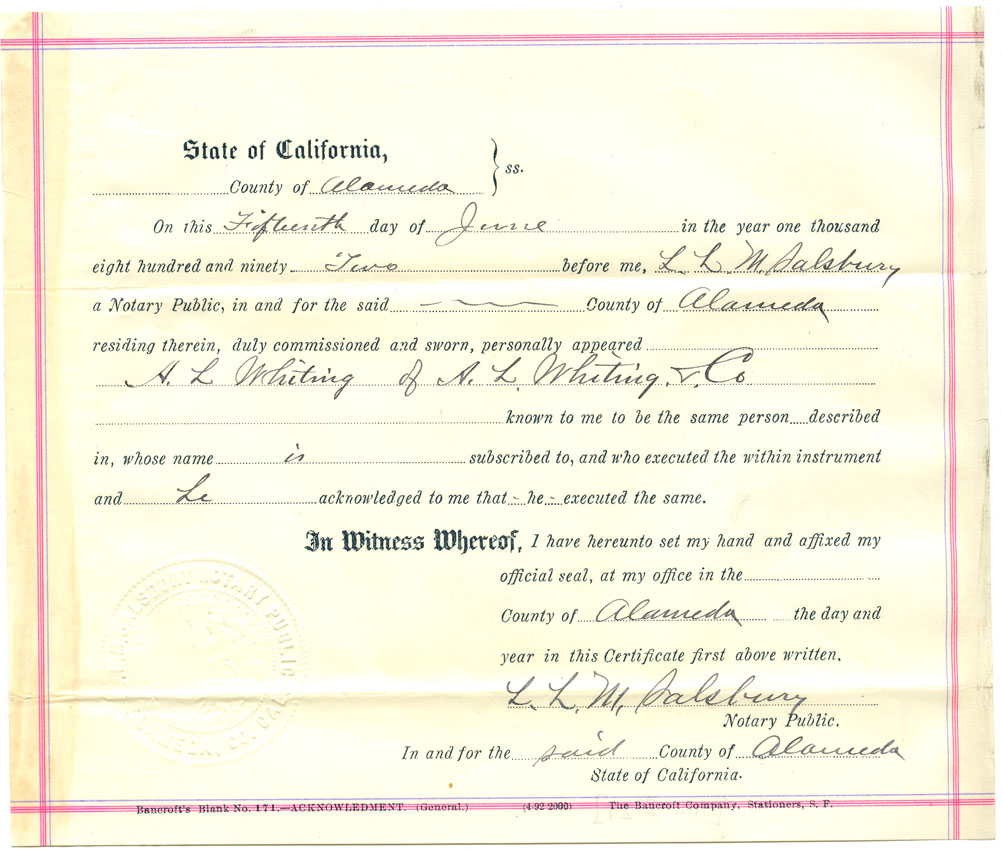 State of California,
County of Alameda } ss.
On this Fifteenth day of June in the year one thousand
eight hundred and ninety Two before me, L. L. M. Salsbury
a Notary Public, in and for the said County of Alameda
residing therein, duly commissioned and sworn, personally appeared
A. L Whiting of A. L. Whiting & Co
known to me to be the same person described
in, whose name is subscribed to, and who executed the within instrument
and he acknowledged to me that - he - executed the same.
In Witness Whereof, I have hereunto set my hand and affixed my
official seal, at my office in the
County of Alameda the day and
year in this Certificate first above written.
L. L. M. Salsbury
Notary Public.
In and for the said County of Alameda
State of California.
SBURY NOTARY PUBLIC
Bancroft's Blank No. 171.—ACKNOWLEDGMENT. (General.) (4-92-2000) The Bancroft Company, Stationers, S. F.